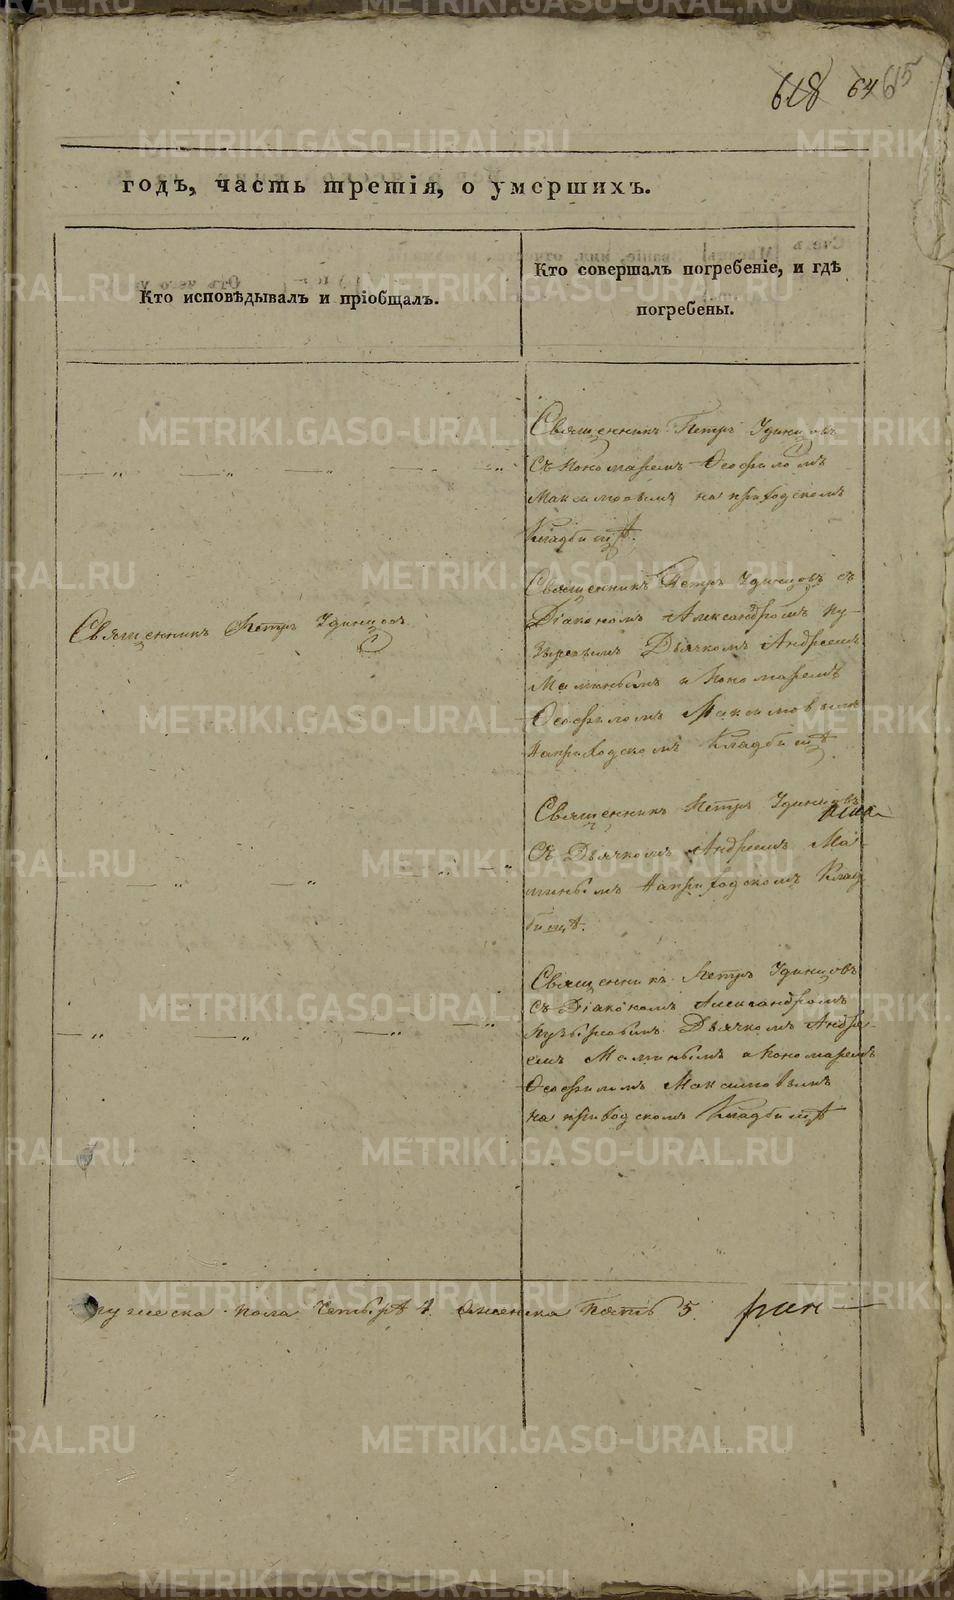 618 64 615
годъ, часть третія, о умершихъ.
Кто исповѣдывалъ и пріобщалъ.
Кто совершалъ погребеніе, и гдѣ
погребены.
Священникъ Петръ Удинцовъ
съ Пономаремъ Ѳеофиломъ
Максимовымъ на приходскомъ
Кладбищѣ.
Священникъ Петръ Удинцовъ
Священникъ Петръ Удинцовъ съ
Діакономъ Александромъ Пу-
зыревымъ Дьячкомъ Андреемъ
Маминымъ и Пономаремъ
Ѳеофиломъ Максимовымъ
На приходскомъ Кладбищѣ
Священникъ Петръ Удинцовъ
Съ Дьячкомъ Андреемъ Ма-
минымъ На приходскомъ Клад
бищѣ.
Священникъ Петръ Удинцовъ
Съ Діакономъ Александромъ
Пузыревымъ Дьячкомъ Андре-
емъ Маминымъ и Пономаремъ
Ѳеофиломъ Максимовымъ
На приходскомъ Кладбищѣ
мужеска пола Четырѣ 4. Аженска Пять 5.
METRIKI.GASO-URAL.RU